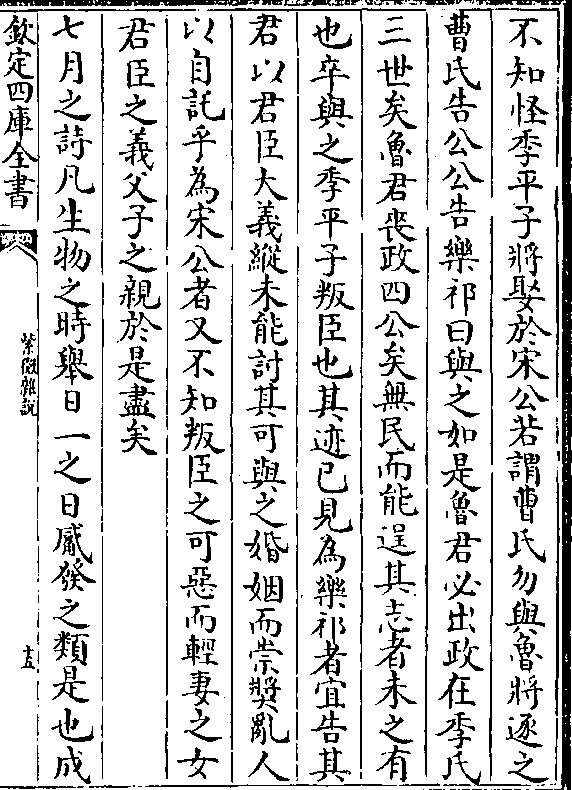 不知怪季平子將娶於宋公若謂曹氏勿與魯將逐之
曹氏告公公告樂祁曰與之如是魯君必出政在季氏
三世矣魯君喪政四公矣無民而能逞其志者未之有
也卒與之季平子叛臣也其迹已見為樂祁者宜告其
君以君臣大義縱未能討其可與之婚姻而崇奬亂人
以自託乎為宋公者又不知叛臣之可惡而輕妻之女
君臣之義父子之親於是盡矣
七月之詩凡生物之時舉日一之日觱發之類是也成
欽定四庫全書
紫微雜說
十五